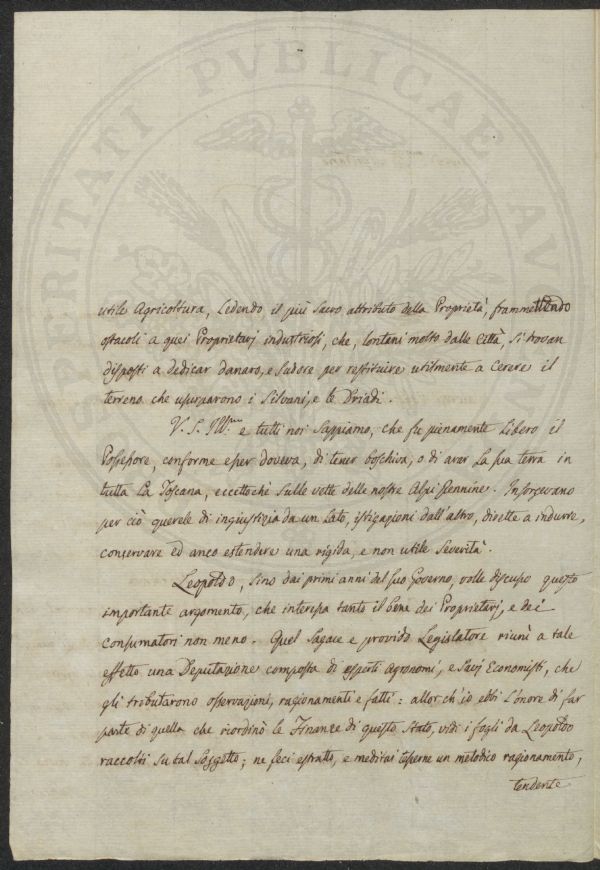 PROSPERITATI PVBLICAE AVGENDAE
utile Agricoltura, Ledendo il più Sacro attributo della Proprietà, frammettendo
ostacoli a quei Proprietarj industriosi, che, lontani molto dalle Città, si trovan
disposti a dedicar danaro, e sudore per restituire utilmente a Cerere il
terreno che usurparono i Silvani, e le Driadi.
V. S. Ill.ma e tutti noi sappiamo, che fu pienamente libero il
Possessore, conforme esser doveva, di tener boschiva, o di arar la sua terra in
tutta la Toscana, eccettochè sulle vette delle nostre Alpi Pennine. Insorgevano
per ciò querele di ingiustizia da un lato, istigazioni dall'altro, dirette a indurre,
conservare ed anco estendere una rigida, e non utile Severità.
Leopoldo, sino dai primi anni del suo Governo, volle discusso questo
importante argomento, che interessa tanto il bene dei Proprietarj, e dei
consumatori non meno. Quel Sagace e provido Legislatore riunì a tale
effetto una Deputazione composta di esperti Agronomi, e Savj Economisti, che
gli tributarono osservazioni, ragionamenti e fatti: allor ch'io ebbi l'onore di far
parte di quella che riordinò le Finanze di questo Stato, vidi i fogli da Leopoldo
raccolti su tal Soggetto; ne feci estratto, e meditai tesserne un metodico ragionamento,
tendente